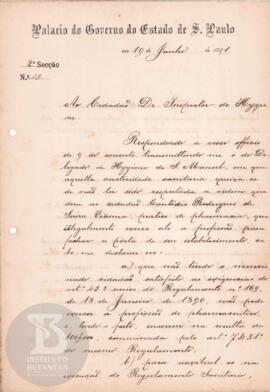 Palacio do Governo do Estado de S. Paulo
em 19 de Junho de 1891
2ª Secção
Nº
Ao Cidadão Dr. Inspector de Hygie-
ne.
Respondendo a vosso officio
de 9 do corrente transmittindo-me o do De-
legado de Hygiene de S. Manoel, em que
aquella auctoridade sanitaria queixa-se
de não ter sido respeitada a ordem que
deu ao cidadão Rodrigues de
pratico de pharmacia, que
illegalmente exerce alli a profissão, para
fechar a porta de seu estabelecimento, ca-
be-me declarar-vos:
a) que não tendo o mencio-
nado cidadão satisfeito as exigencias do
artº 43 do Regulamento nº 169,
de 18 de Janeiro de 1890, não pode
exercer a profissão de pharmaceutico,
e, tendo-o feito, incorreu na multa de
do mesmo Regulamento;
b) para
do Regulamento Sanitario,
INSTITUTO
BUTANTAN